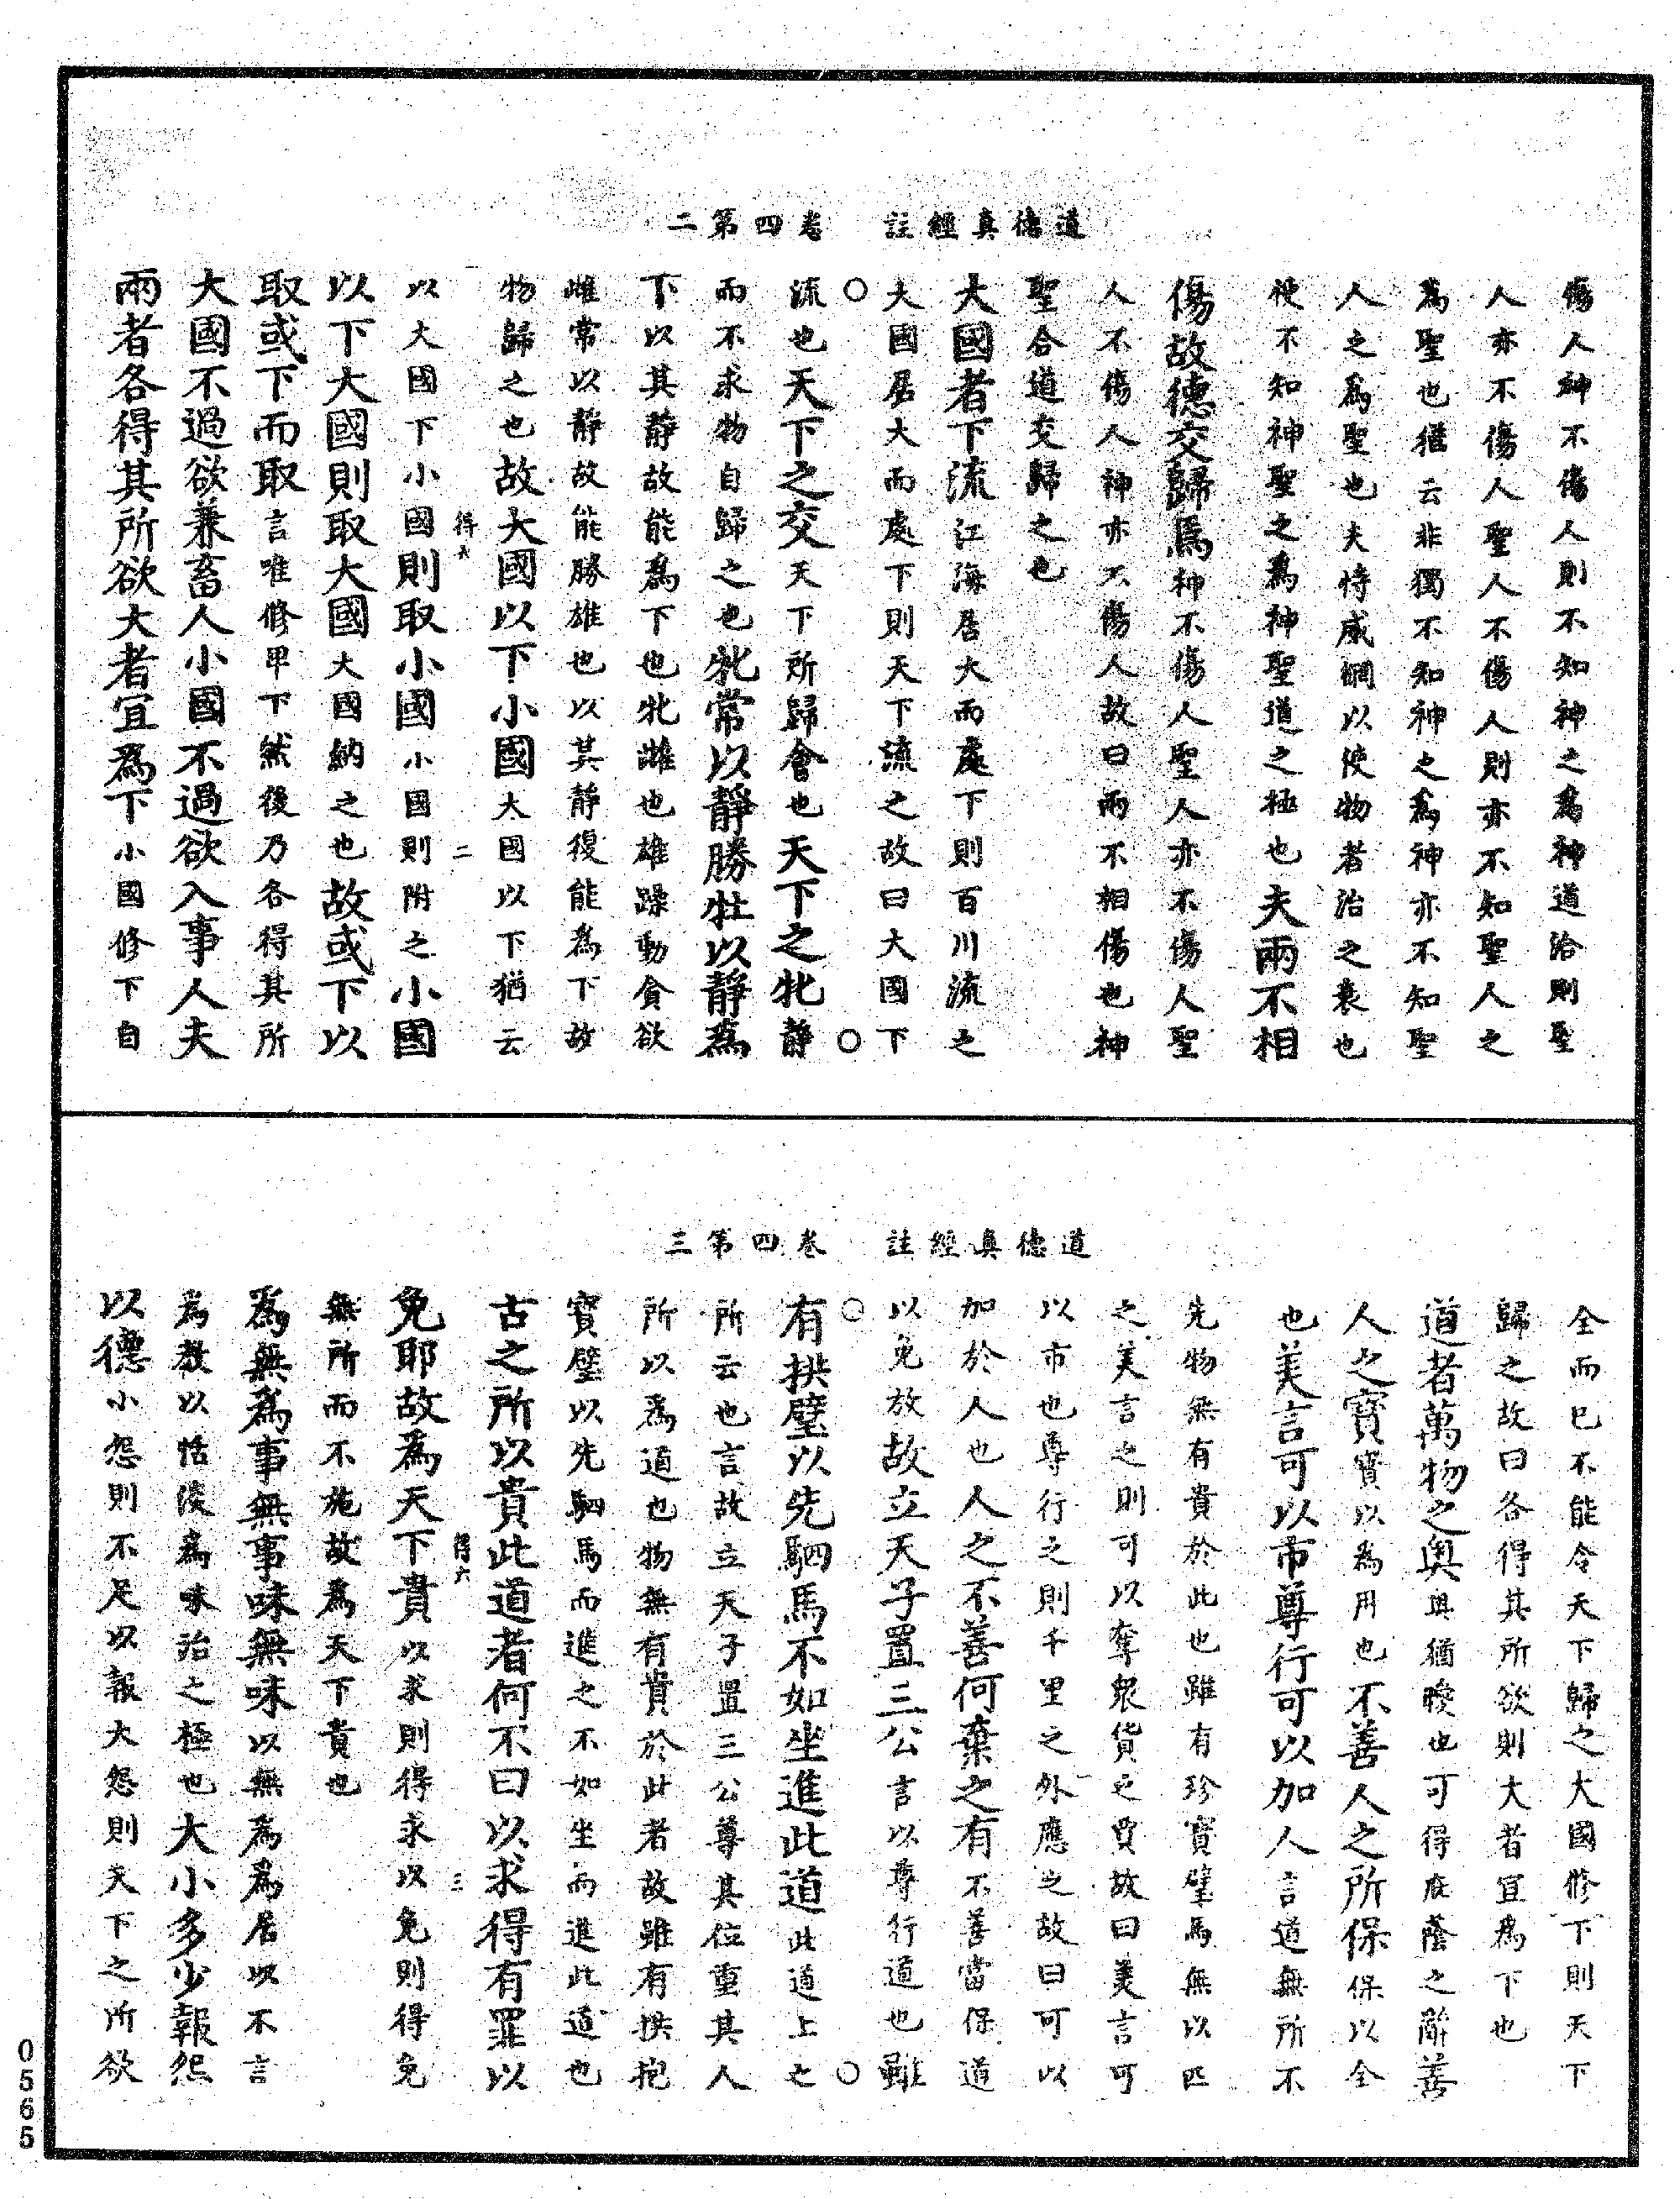 道德真經註　卷四第二
傷人神不傷人則不知神之爲神道洽則聖
人亦不傷人聖人不傷人則亦不知聖人之
爲聖也猶云非獨不知神之爲神亦不知聖
人之爲聖也夫恃威網以使物者治之衰也
使不知神聖之爲神聖道之極也夫兩不相
傷故德交歸焉神不傷人聖人亦不傷人聖
人不傷人神亦不傷人故曰兩不相傷也神
聖合道交歸之也
大國者下流江海居大而處下則百川流之
大國居大而處下則天下流之故曰大國下
○　○
流也天下之交天下所歸會也天下之牝靜
而不求物自歸之也牝常以靜勝牡以靜爲
下以其靜故能爲下也牝雌也雄躁動貪欲
雌常以靜故能勝雄也以其靜復能爲下故
物歸之也故大國以下小國大國以下猶云
得六　二
以大國下小國則取小國小國則附之小國
以下大國則取大國大國納之也故或下以
取或下而取言唯修卑下然後乃各得其所
大國不過欲兼畜人小國不過欲入事人夫
兩者各得其所欲大者宜爲下小國修下自
道德真經註　卷四第三
全而已不能令天下歸之大國修下則天下
歸之故曰各得其所欲則大者宜爲下也
道者萬物之奧奧猶曖也可得庇蔭之辭善
人之寶寶以爲用也不善人之所保保以全
也美言可以市尊行可以加人言道無所不
先物無有貴於此也雖有珍寶璧馬無以匹
之美言之則可以奪衆貨之賈故曰美言可
以市也尊行之則千里之外應之故曰可以
加於人也人之不善何棄之有不善當保道
以免放故立天子置三公言以尊行道也雖
○　○
有拱璧以先駟馬不如坐進此道此道上之
所云也言故立天子置三公尊其位重其人
所以爲道也物無有貴於此者故雖有拱抱
寶璧以先駟馬而進之不如坐而進此道也
古之所以貴此道者何不曰以求得有罪以
得六　三
免耶故爲天下貴以求則得求以免則得免
無所而不施故爲天下貴也
爲無爲事無事味無味以無爲爲居以不言
爲教以恬淡爲味治之極也大小多少報怨
以德小怨則不足以報大怨則天下之所欲
0565